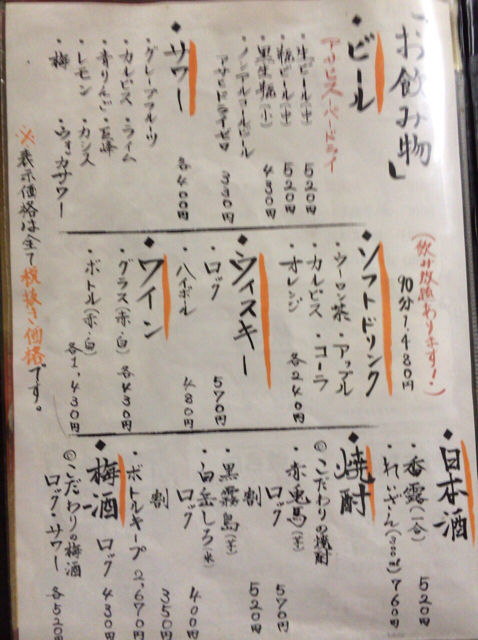 「お飲み物」
◆ビール
(アサヒスーパードライ
・生ビール(中) 520円
・瓶ビール(中) 520円
・黒生瓶(小) 430円
・ノンアルコールビール
アサヒドライゼロ 330円
◆サワー 各400円
・グレープフルーツ
・カルピス・ライム
・青りんご・巨峰
・レモン・カシス
・梅・ウォッカサワー
(飲み放題あります!)
90分1,480円
◆ソフトドリンク
・ウーロン茶・アップル
・カルピス・コーラ
・オレンジ 各240円
◆ウィスキー
・ロック 570円
・ハイボール 480円
◆ワイン
・グラス(赤・白) 各430円
・ボトル(赤・白) 各1,430円
◆日本酒
・香露(一合) 520円
・れいざん(300ml) 760円
◆焼酎
◎こだわりの焼酎
・赤兎馬(芋)
ロック 570円
割 520円
・黒霧島(芋)
・白岳しろ(米)
ロック 400円
割 350円
・ボトルキープ 2,670円
◆梅酒
ロック 430円
◎こだわりの梅酒
ロック・サワー 各520円
※表示価格は全て税抜き価格です。